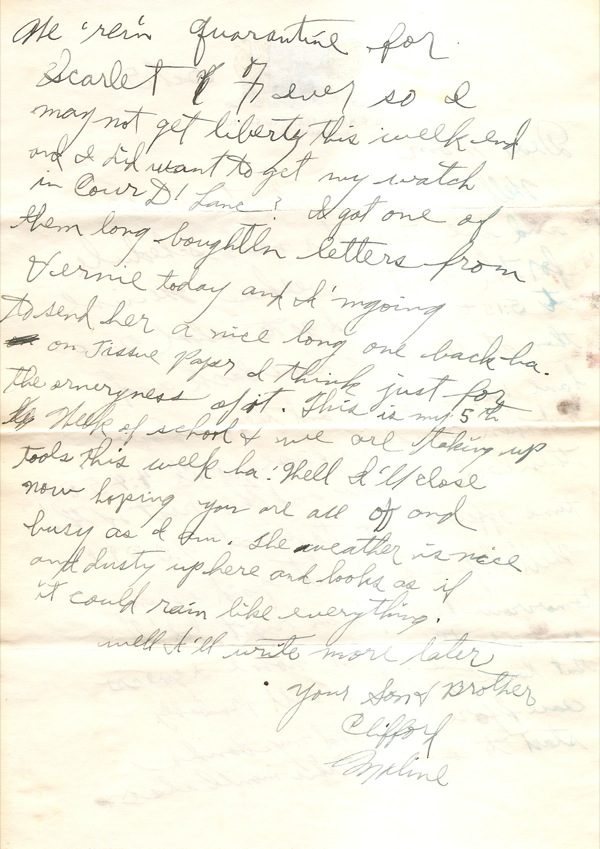 We 'rein quarantine for
Scarlet Fever so I
may not get liberty this week end
and I did want to get my watch
in Cour D' Lane? I got one of
them long boughtln letters from
Vernie today and I'mgoing
to send her a nice long one back ha.
on Tissue Paper I think just for
the orneryness of it. This is my 5th
Week of school & we are taking up
tools this week ha! Well I'll close
now hoping you are all of and
busy as I am. The weather is nice
and dusty up here and looks as if
it could rain like everything.
well I'll write more later
your Son & Brother
Clifford
Maline